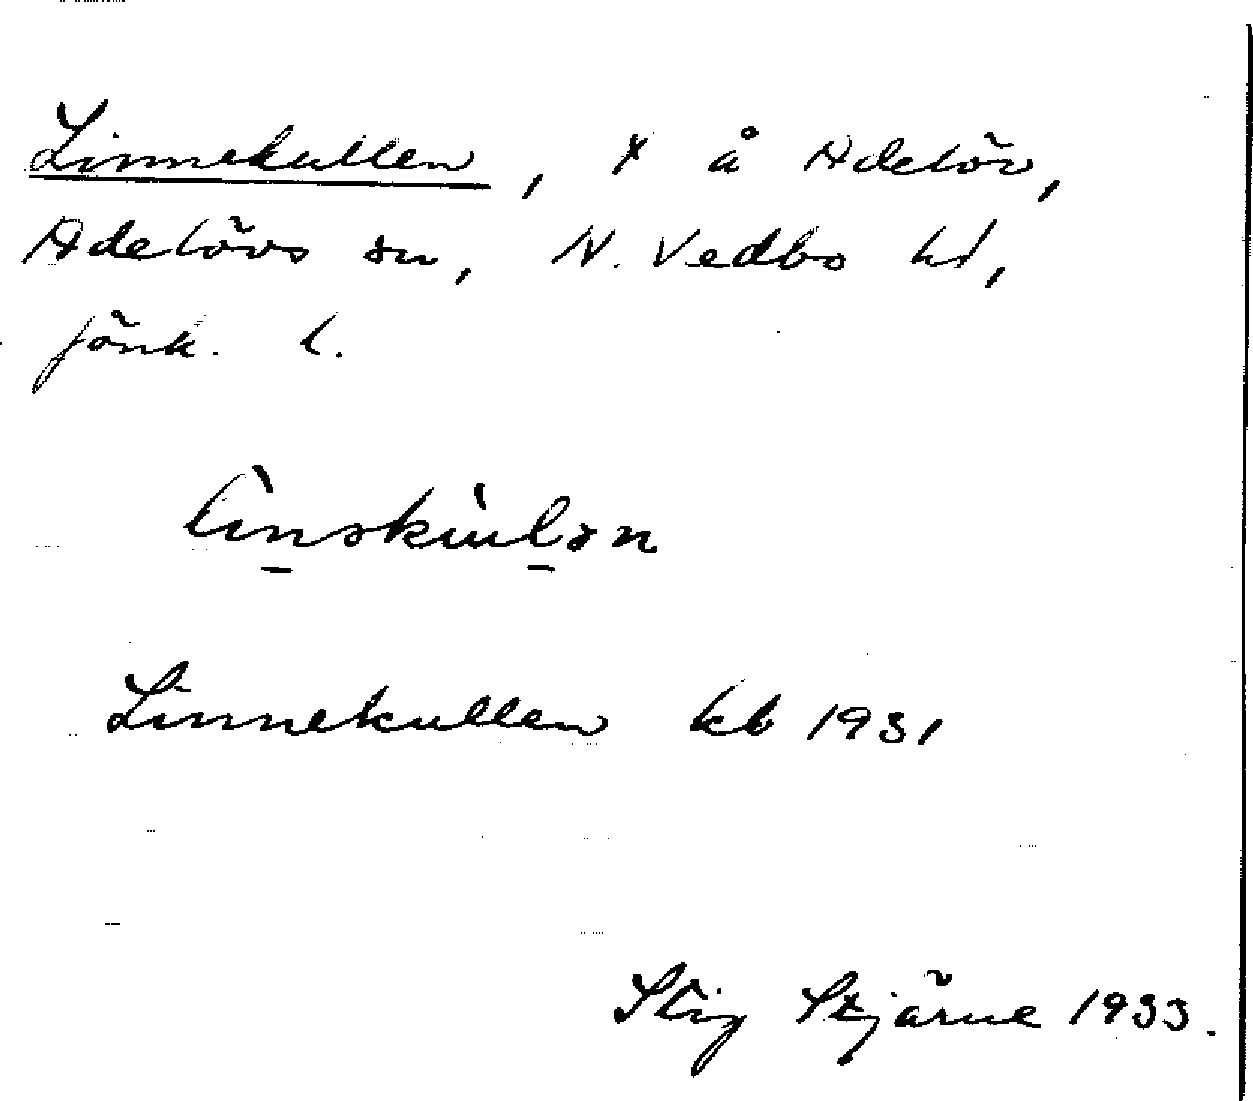 Linnekullen, x å Adelöv,
Adelövs sn, N. Vedbo hd,
Jönk. l.
Linnekullen kb 1931
Stig Stjärne 1933.